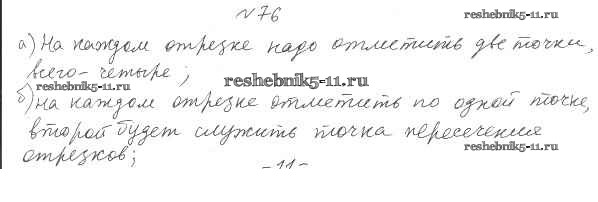 № 76
reshebnik5-11.ru
а) На каждом отрезке надо отметить две точки,
всего - четыре ;
reshebnik5-11.ru
reshebnik5-11.ru
б) на каждом отрезке отметить по одной точке,
второй будет служить точка пересечения
reshebnik5-11.ru
отрезков;
-11-